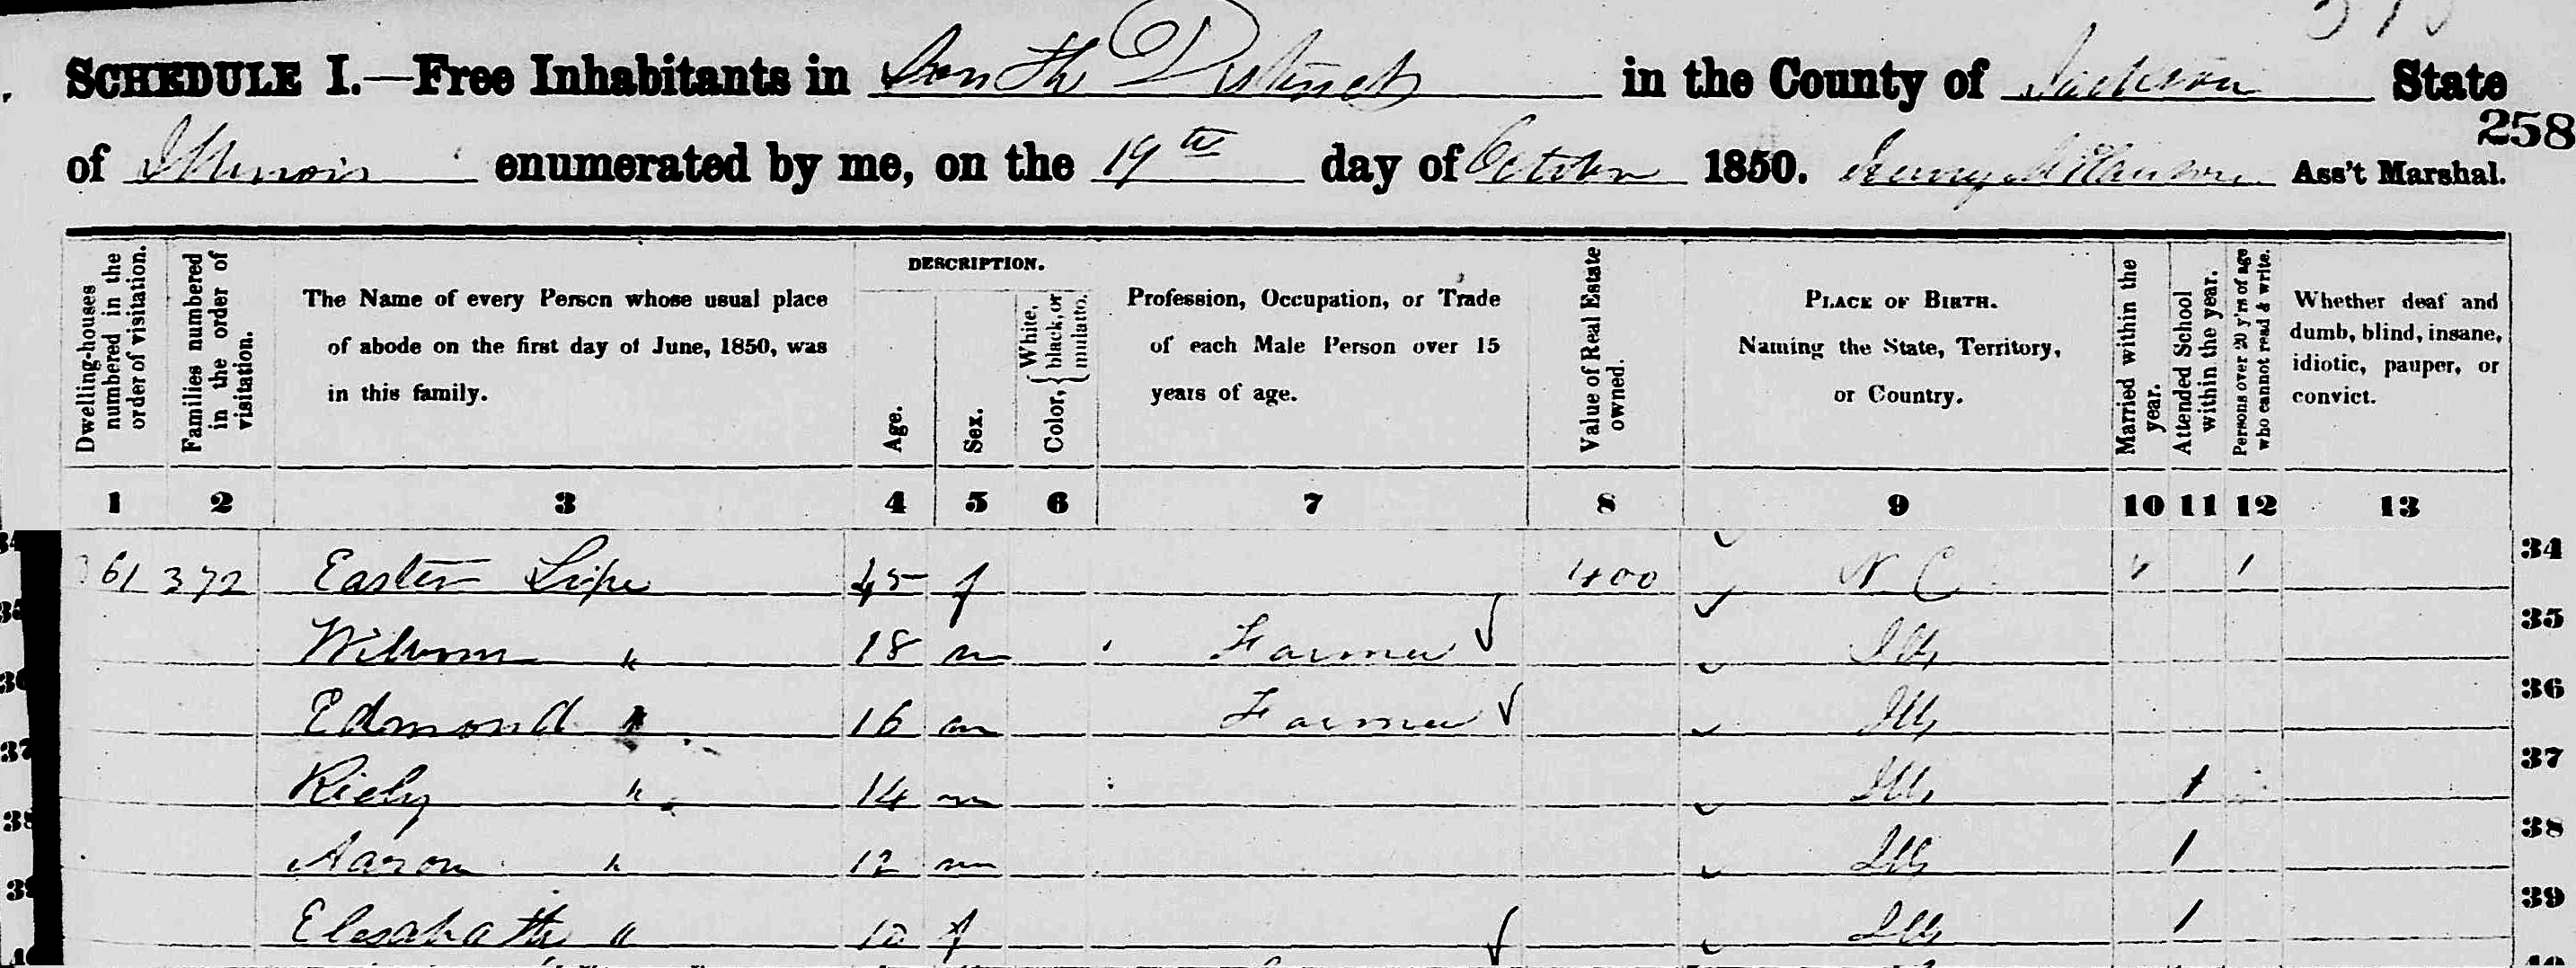 SCHEDULE I.—Free Inhabitants in South District in the County of Jackson State
258
of Illinois enumerated by me, on the 19th day of October 1850. Ass't Marshal.
Dwelling-houses numbered in the order of visitation.
Families numbered in the order of visitation.
The Name of every Person whose usual place
of abode on the first day of June, 1850, was
in this family.
DESCRIPTION.
Age.
Sex.
Color, { White, black, or mulatto.
Profession, Occupation, or Trade
of each Male Person over 15
years of age.
Value of Real Estate owned.
PLACE OF BIRTH.
Naming the State, Territory,
or Country.
Married within the year.
Attended School within the year.
Persons over 20 y'rs of age who cannot read & write.
Whether deaf and
dumb, blind, insane,
idiotic, pauper, or
convict.
1 2 3 4 5 6 7 8 9 10 11 12 13
34 361 372 Easter Lipe 45 f 400 N C 1 34
35 " 18 m Farmer Ills 35
36 Edmond " 16 m Farmer Ills 36
37 Riely " 14 m Ills 1 37
38 Aaron " 12 m Ills 1 38
39 Elesabath " 10 f Ills 1 39
40 40